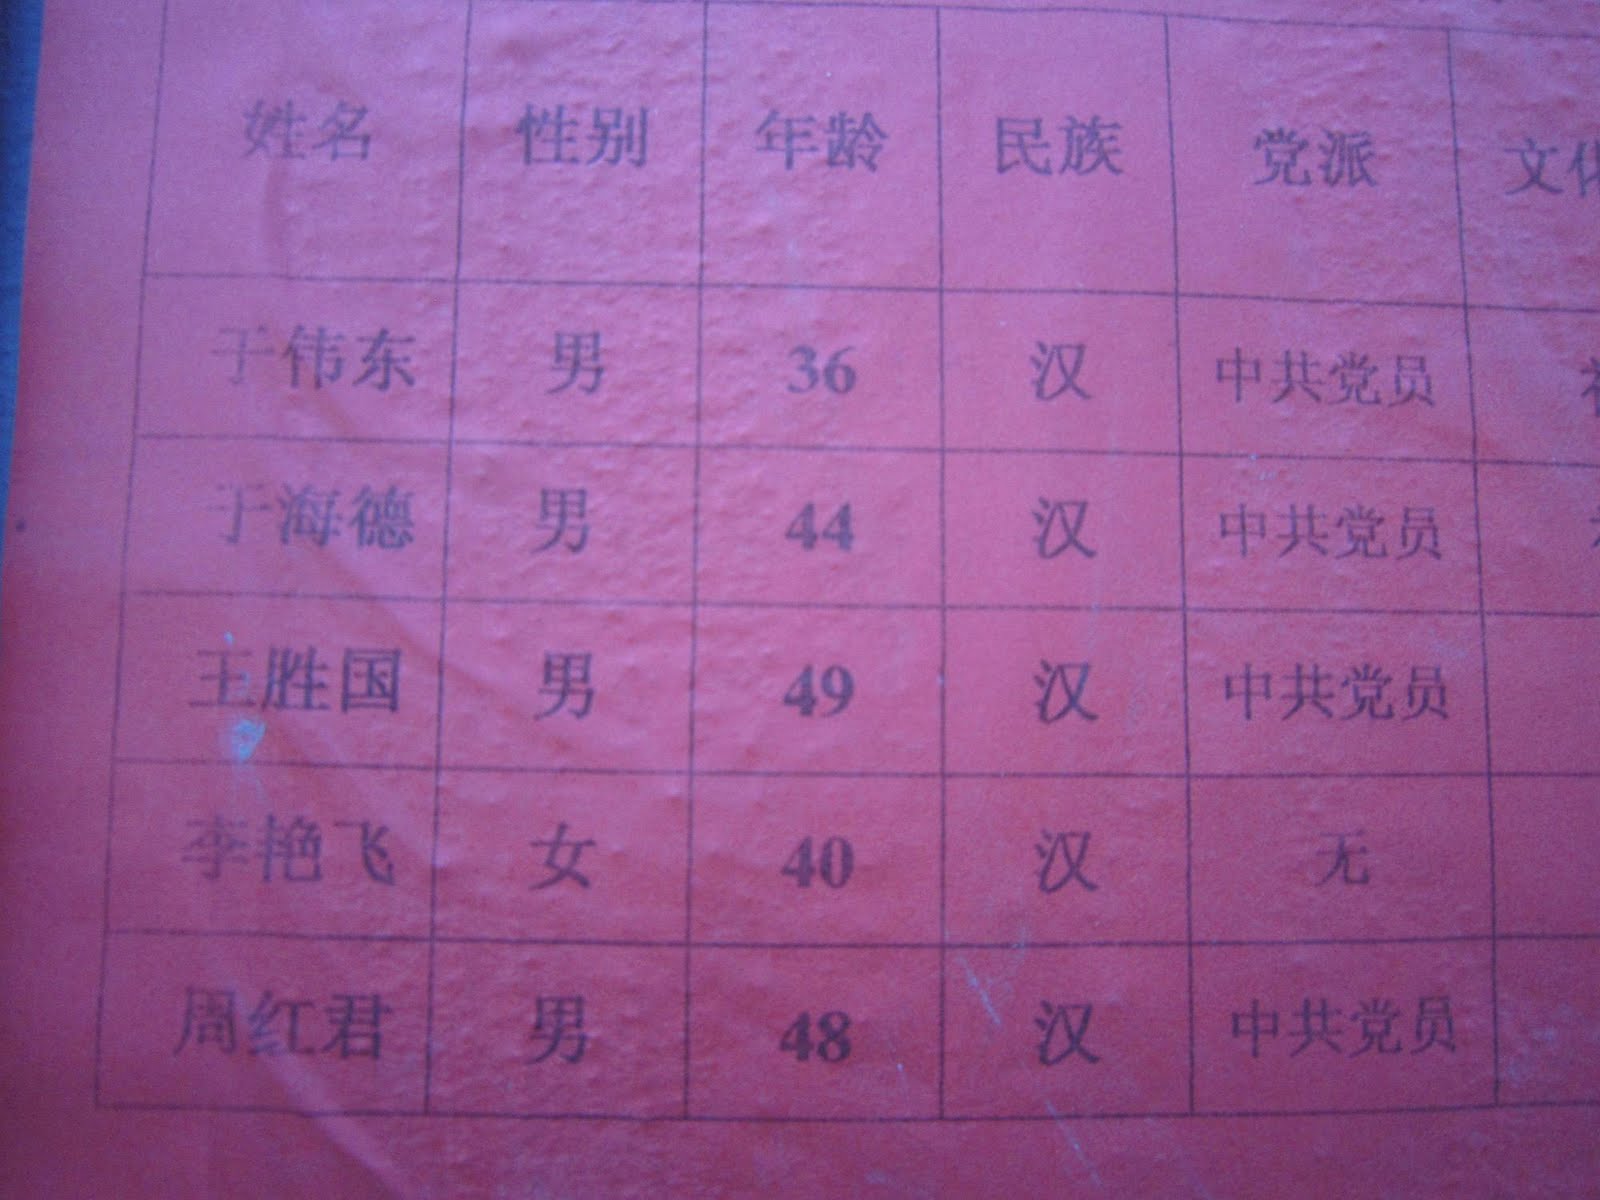 姓名 性别 年龄 民族 党派 文化
于伟东 男 36 汉 中共党员
于海德 男 44 汉 中共党员
王胜国 男 49 汉 中共党员
李艳飞 女 40 汉 无
周红君 男 48 汉 中共党员